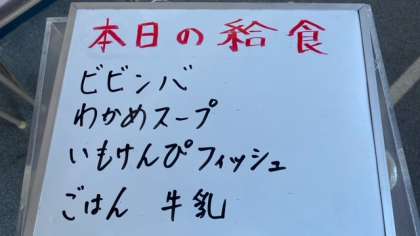 本日の給食
ビビンバ
わかめスープ
いもけんぴフィッシュ
ごはん 牛乳